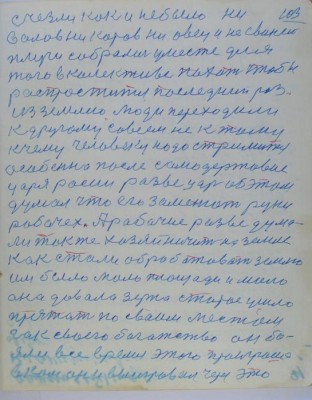 счезли как и небыло ни 103
валов ни каров ни овец и не свиней
плуги собрали уместе для
того в калективе пахат чтобы
распростится последний раз.
из землею люди переходили
к другому совсем не к таму
к чему человеку надо стремится
особенно после самодержавие
царя расии разве царь об этом
думал что его заменят руки
рабочех. А рабочие разве дума-
ли так же хозяйничат на земле
как стали обрабатоват землю
им было мало площади и мало
она давала зерна старое ушло
прятат по сваем местам
как своего богатство он бо-
ялис все время этого